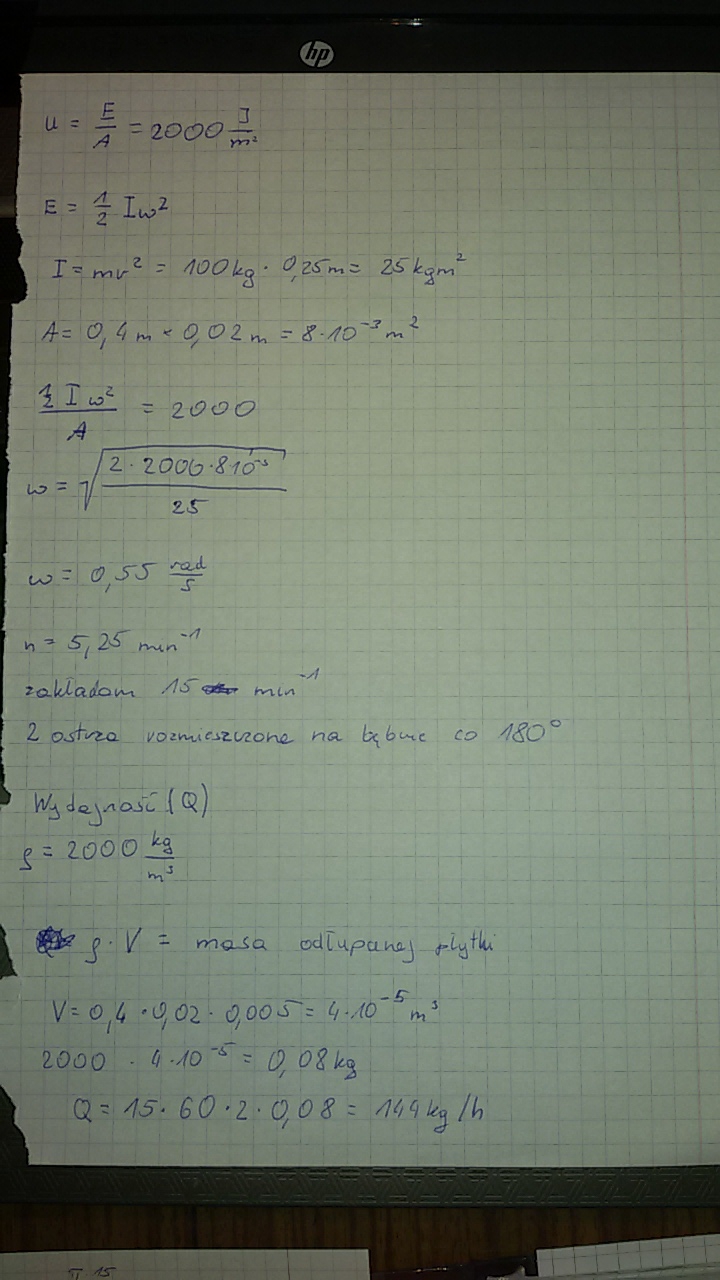 hp
U = E/A = 2000 J/m²
E = 1/2 Iω²
I = mr² = 100kg · 0,25m = 25 kgm²
A = 0,4m × 0,02m = 8·10⁻³ m²
1/2 I ω² / A = 2000
ω = √(2·2000·8·10⁻³ / 25)
ω = 0,55 rad/s
n = 5,25 min⁻¹
zakładam 15 min⁻¹
2 ostrza rozmieszczone na bębnie co 180°
Wydajność (Q)
ρ = 2000 kg/m³
ρ · V = masa odłupanej płytki
V = 0,4 · 0,02 · 0,005 = 4·10⁻⁵ m³
2000 · 4·10⁻⁵ = 0,08kg
Q = 15·60·2·0,08 = 144 kg/h